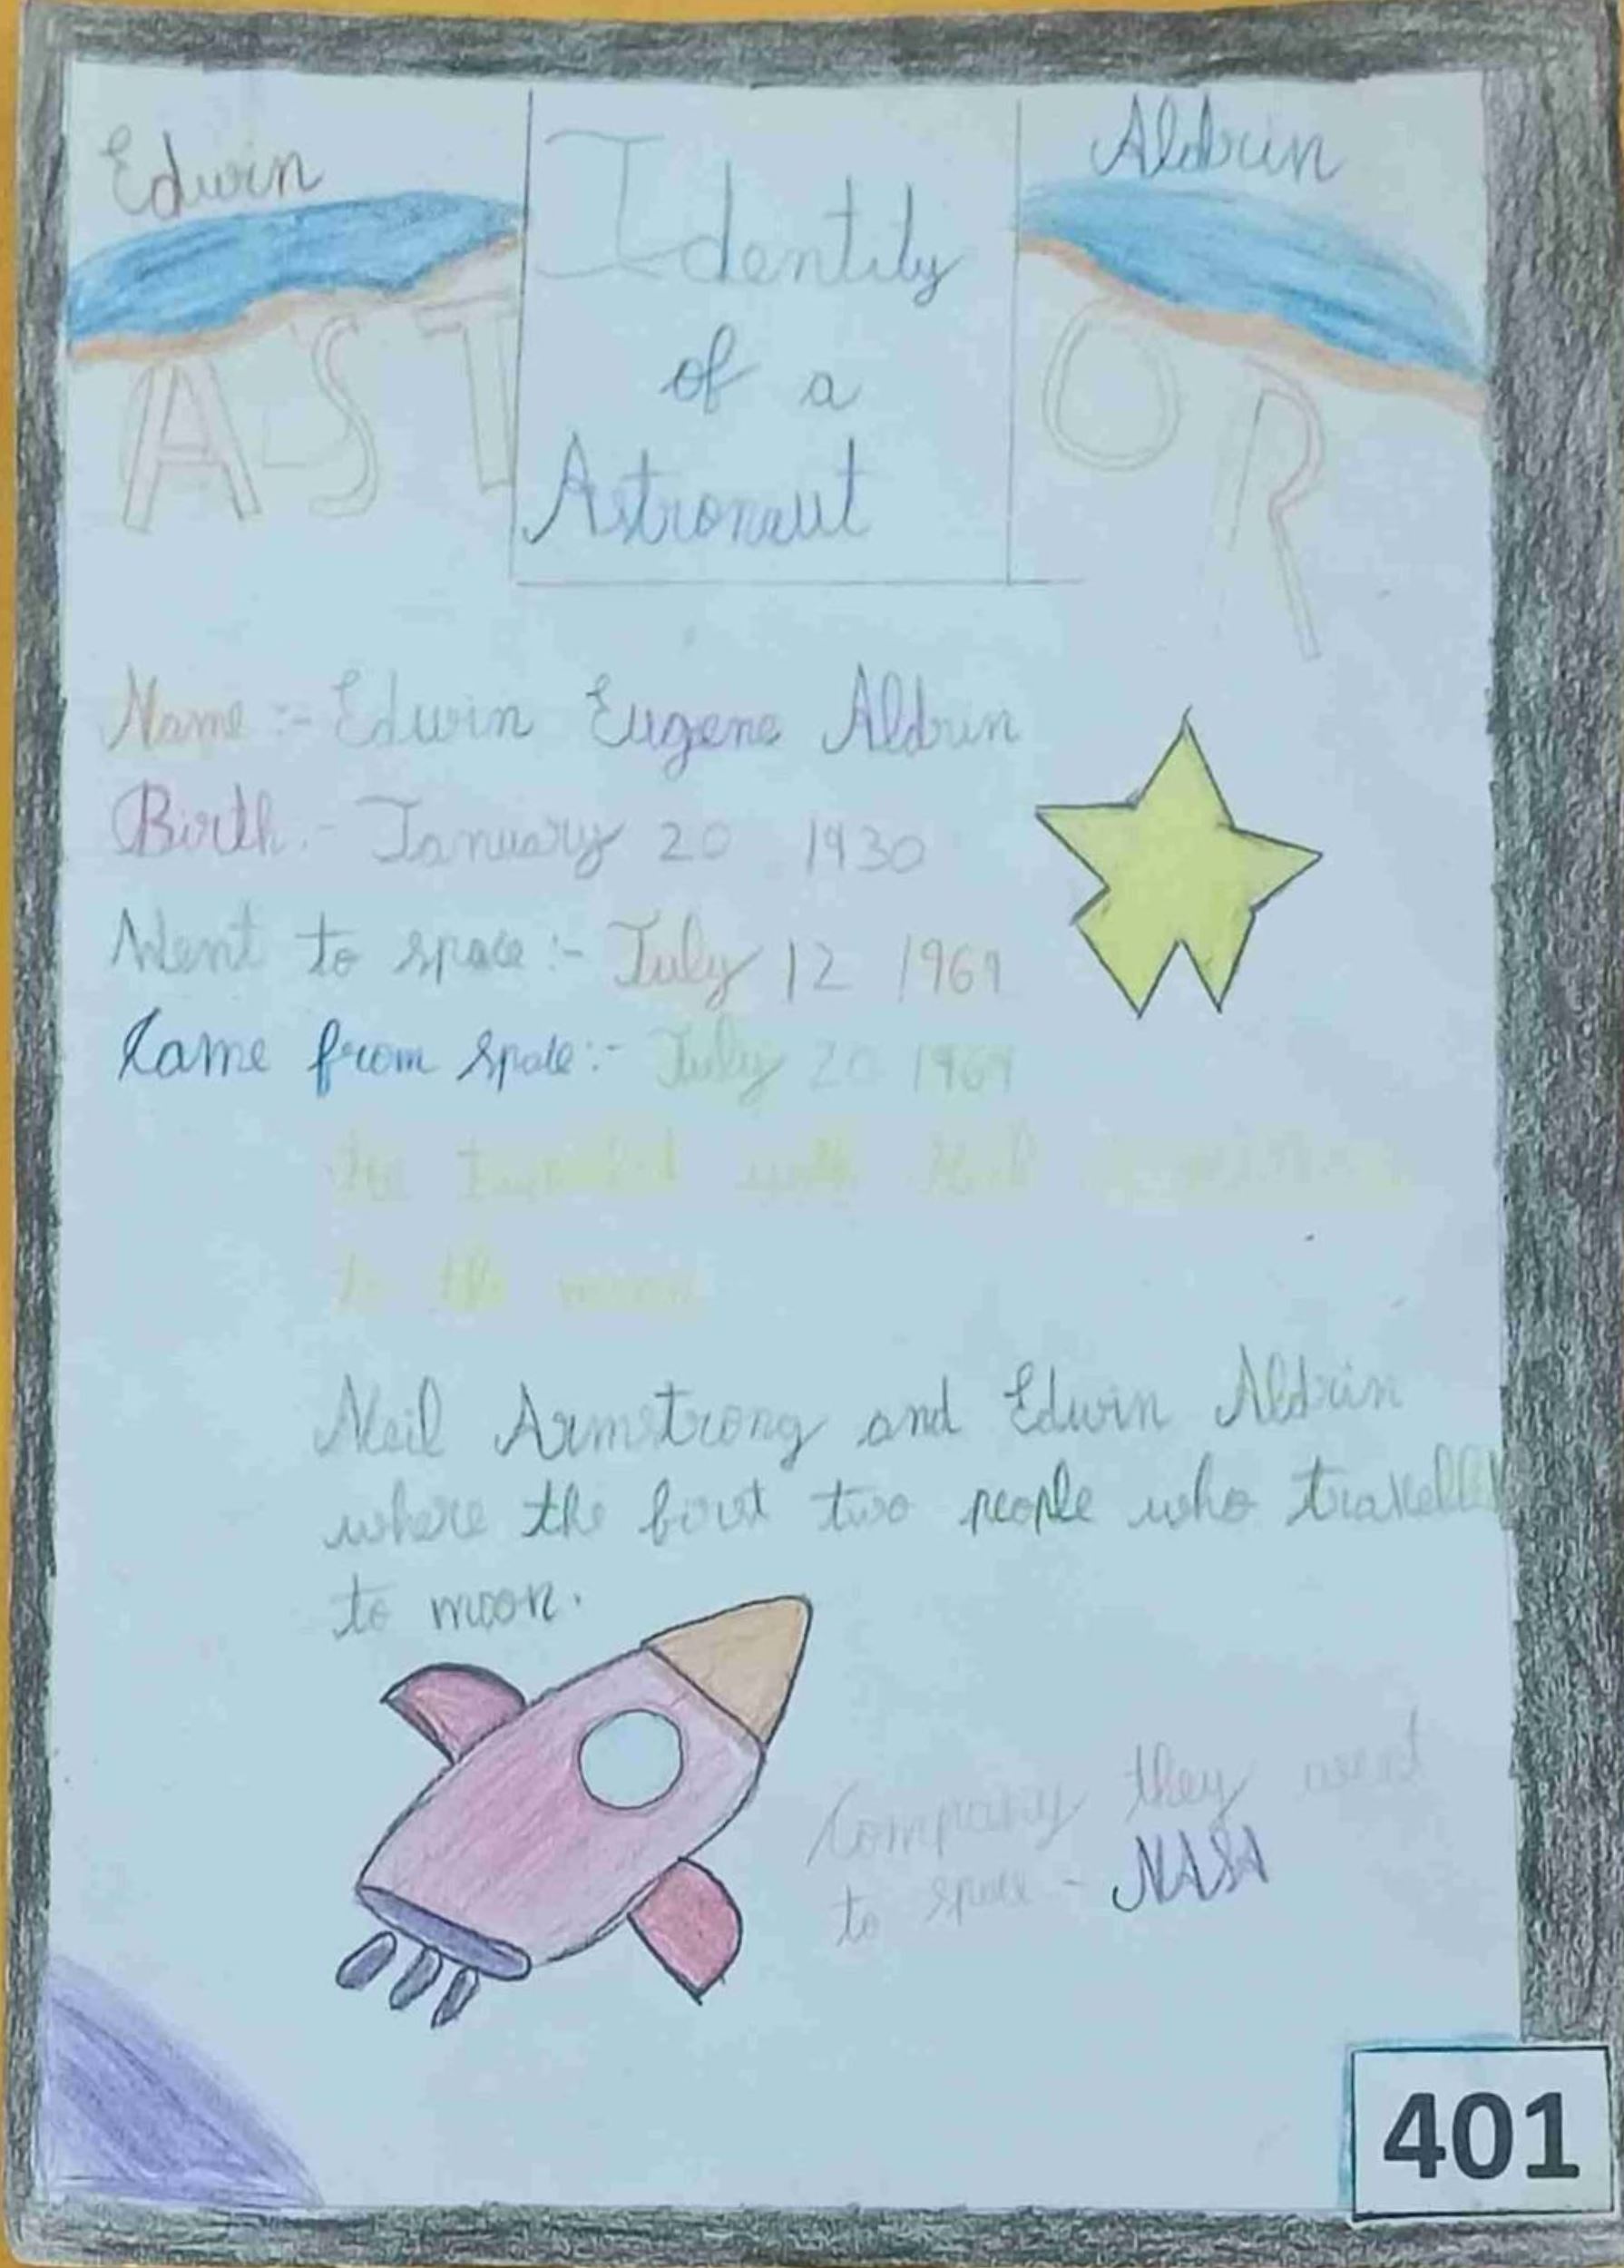 Edwin
Identity
of a
Astronaut
Aldrin
AST
OR
Name :- Edwin Eugene Aldrin
Birth :- January 20 1930
Went to space :- July 12 1969
Came from space :- July 20 1969
He travelled with Neil
to the moon
Neil Armstrong and Edwin Aldrin
where the first two people who travelled
to moon.
Company they went
to space - NASA
401